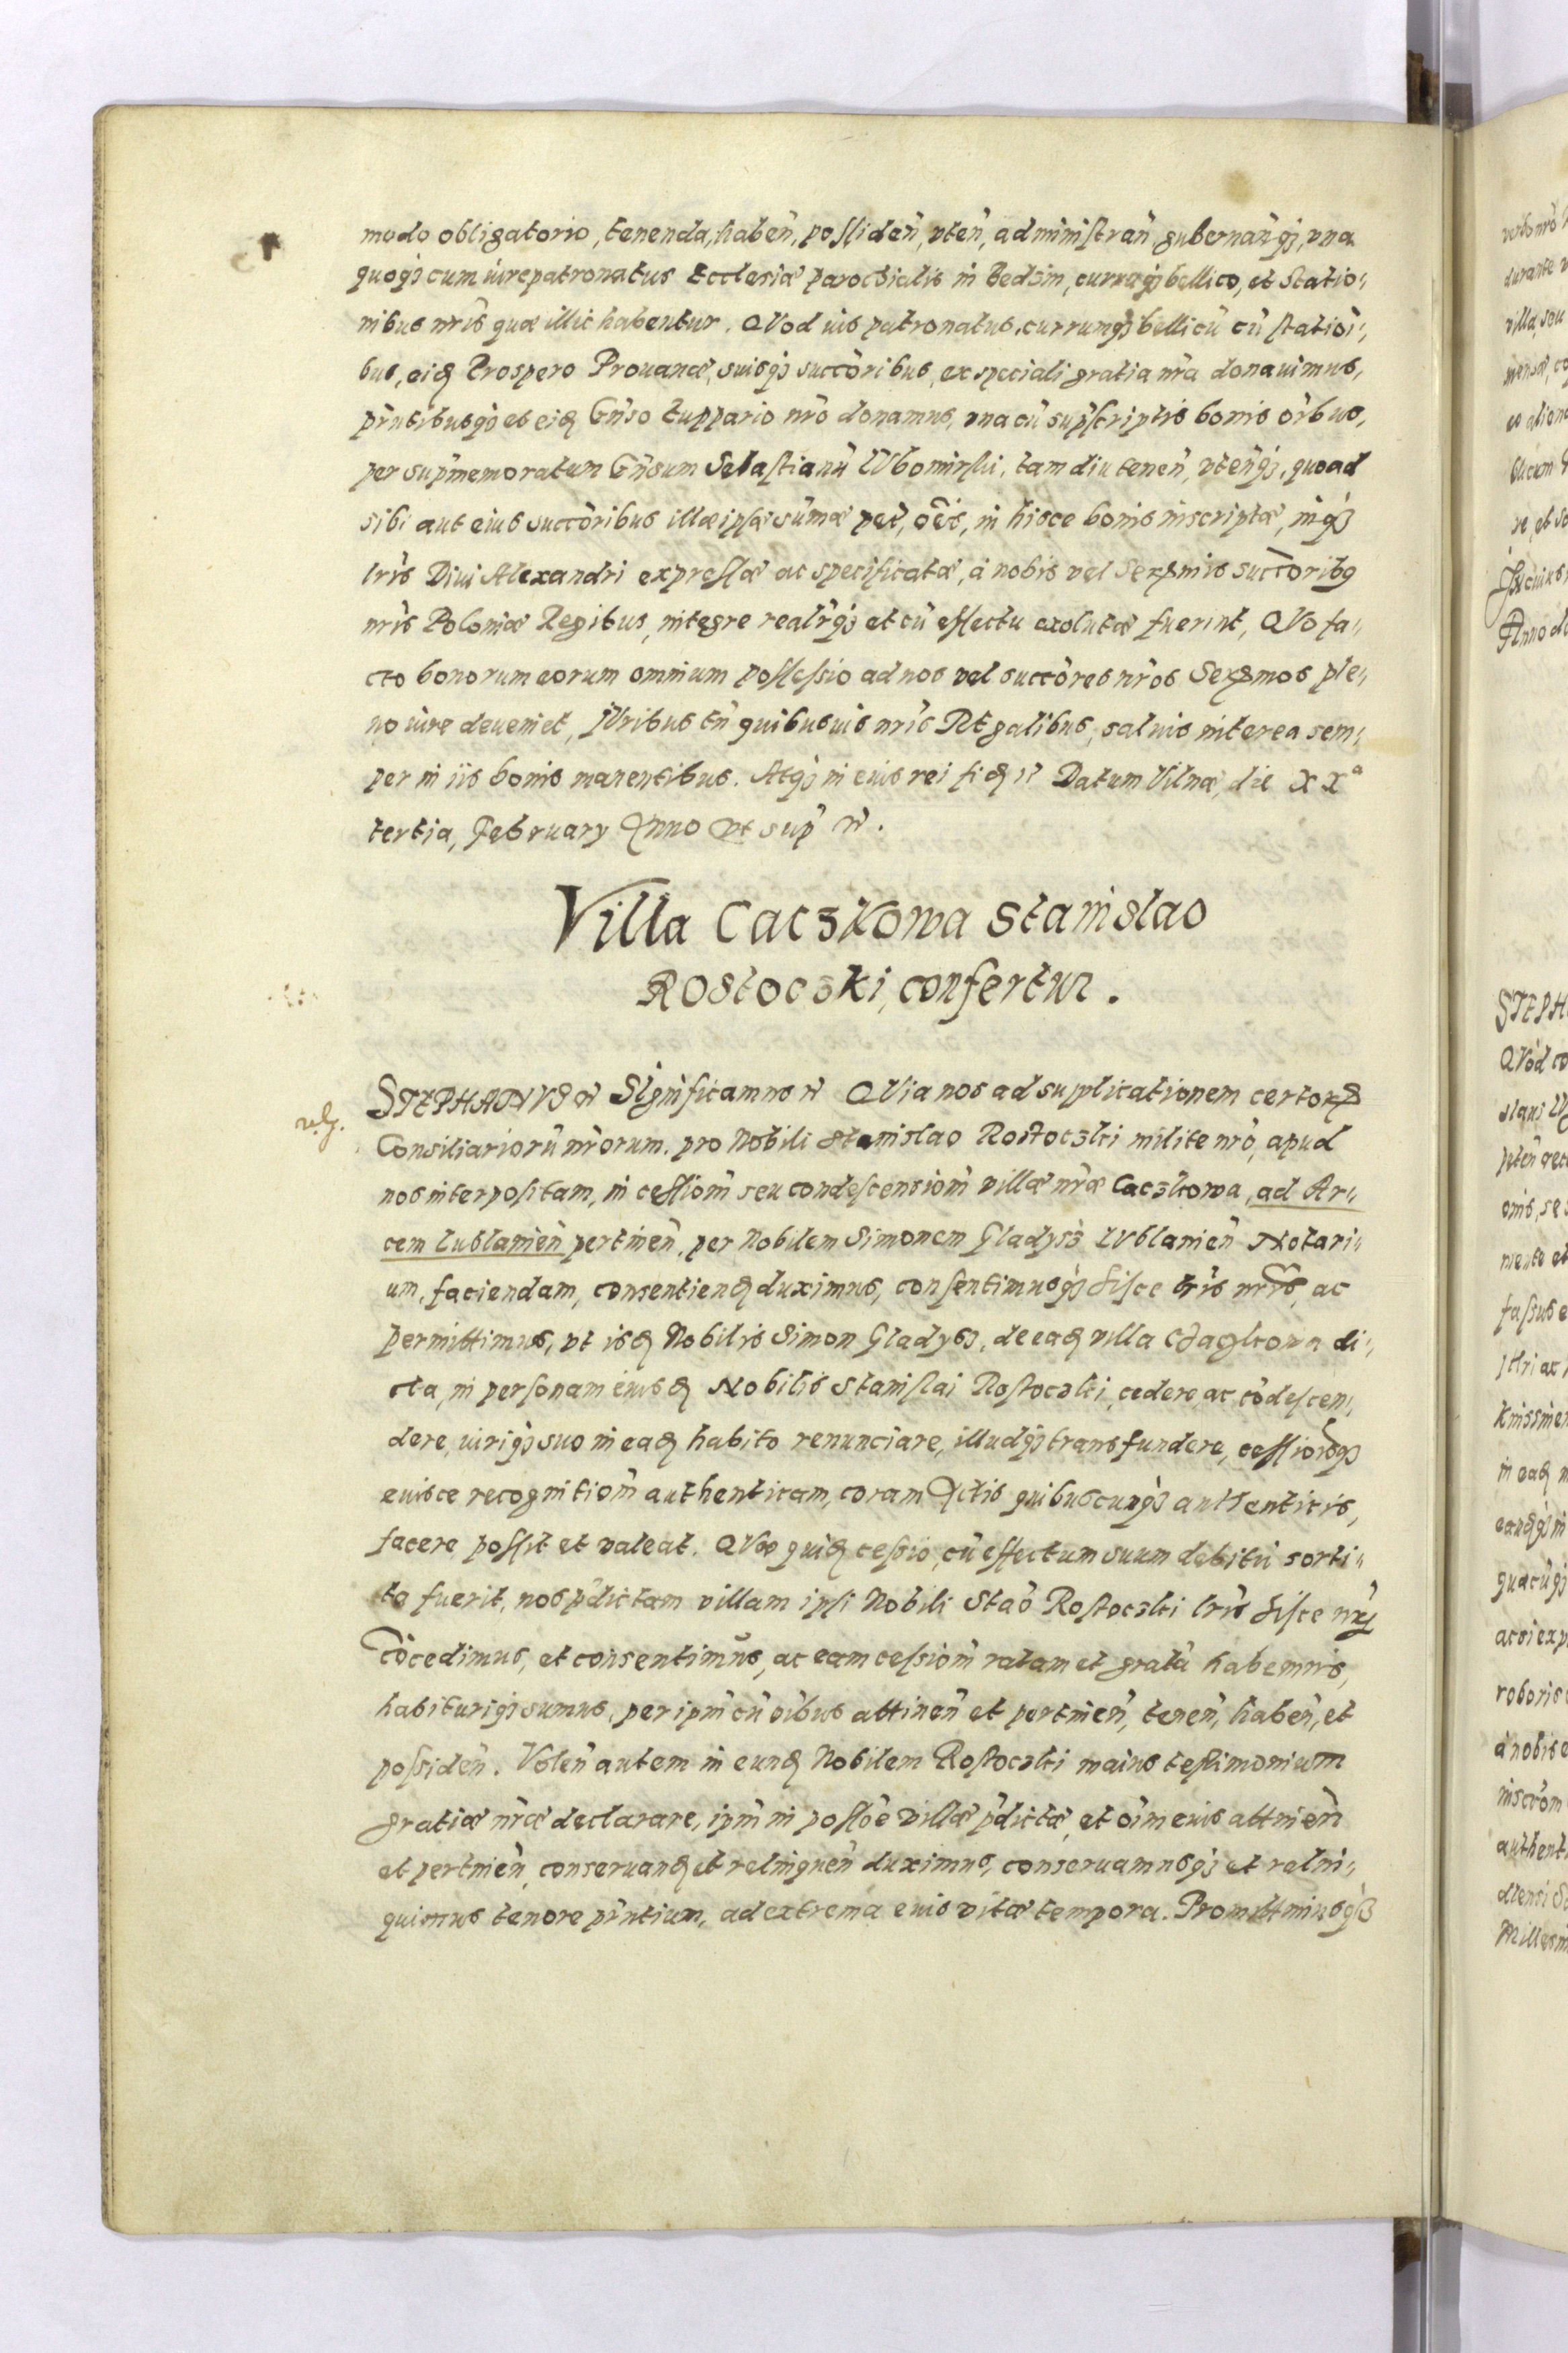 modo obligatorio, tenenda, haben̄, possiden̄, vten̄, administran̄ gubernan̄qȝ, vna
quoqȝ cum iure patronatus Ecclesiæ parochialis in Bedzin, curruqȝ bellico, et statio„
nibus nr̄is quæ illic habentur. QVod ius patronatus, currumqȝ bellicū cū statioī„
bus, eidē Prospero Prouanæ, suisqȝ succōribus, ex speciali gratia nr̄a donauimus,
pn̄tibusqȝ et eidē Gn̄so Zuppario nr̄o donamus, vna cū sup̄scriptis bonis oībus,
per sup̄memoratum Gn̄sum Sebastianū LVbomirski, tam diu tenen̄, vten̄qȝ, quoad
sibi aut eius succōribus illæ ipsæ sūmæ pec̄, oēs, in hisce bonis inscriptæ, inqȝ
lr̄is Diui Alexandri expressæ ac specificatæ, à nobis vel Serꝫmis succōribꝫ
nr̄is Poloniæ Regibus, integre realr̄qȝ et cū effectu exolutæ fuerint, QVo fa„
cto bonorum eorum omnium possessio ad nos vel succōres nr̄os Serꝫmos ple„
no iure deueniet, JVribus tn̄ quibusuis nr̄is Regalibus, saluis interea sem„
per in iis bonis manentibus. Atqȝ in eius rei fidē etc̄ Datum Vilnæ, die XXᵃ
tertia, February Anno vt sup̄ etc̄.
Villa Caczkowa Stanislao
Rostoczki, confertur.
STEPHANVS etc̄ Significamus etc̄ QVia nos ad supplicationem certorꝫ
Consiliariorū nr̄orum, pro Nobili Stanislao Rostoczki milite nr̄o, apud
nos interpositam, in cessionē seu condescensionē villæ nr̄æ Caczkowa, ad Ar„
cem Lublanien̄ pertinen̄, per Nobilem Simonem Gladysz LVblanien̄ Notari„
um, faciendam, consentiendē duximus, consentimusqȝ hisce lr̄is nr̄is, ac
permittimus, vt isdē Nobilis Simon Gladysz, de eadē villa Czaczkowa di„
cta, in personam eiusdē Nobilis Stanislai Rostoczki, cedere, ac cōdescen„
dere, iuriqȝ suo in eadē habito renunciare, illudqȝ transfundere, cessioīsqȝ
eiusce recognitionē authenticam, coram Actis quibuscunqȝ authenticis,
facere possit et valeat. QVæ quidē cessio, cū effectum suum debitū sorti„
ta fuerit, nos p̄dictam villam ipsi Nobili Staō Rostoczki lr̄is hisce nr̄is
cōcedimus, et consentimus, ac eam cessionē ratam et gratā habemus,
habituriqȝ sumus, per ipm̄ cū oībus attinen̄ et pertinen̄, tenen̄, haben̄, et
possiden̄. Volen̄ autem in eundē Nobilem Rostoczki maius testimonium
gratiæ nr̄æ declarare, ipm̄ in possōe villæ p̄dictæ, et oīm eius attinen̄
et pertinen̄, conseruandē et relinquen̄ duximus, conseruamusqȝ et relin„
quimus tenore pn̄tium, ad extrema eius vitæ tempora. Promittimusqȝ